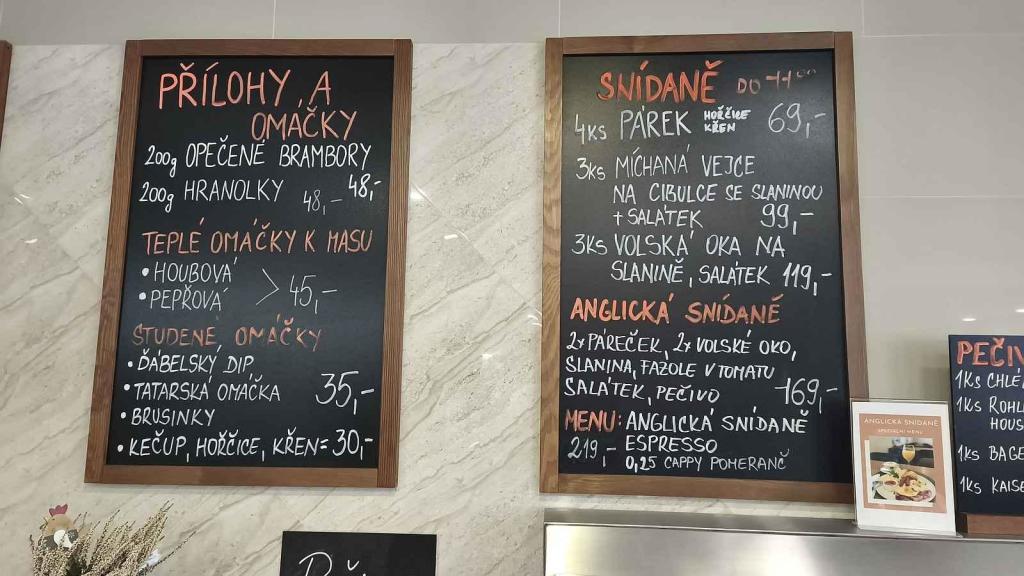 PŘÍLOHY A
OMÁČKY
200g OPEČENÉ BRAMBORY
48,-
200g HRANOLKY 48,-
TEPLÉ OMÁČKY K MASU
• HOUBOVÁ
• PEPŘOVÁ > 45,-
STUDENÉ OMÁČKY
• ĎÁBELSKÝ DIP
• TATARSKÁ OMÁČKA 35,-
• BRUSINKY
• KEČUP, HOŘČICE, KŘEN = 30,-
SNÍDANĚ DO 11⁰⁰
4KS PÁREK HOŘČICE KŘEN 69,-
3KS MÍCHANÁ VEJCE
NA CIBULCE SE SLANINOU
+ SALÁTEK 99,-
3KS VOLSKÁ OKA NA
SLANINĚ, SALÁTEK 119,-
ANGLICKÁ SNÍDANĚ
2x PÁREČEK, 2x VOLSKÉ OKO,
SLANINA, FAZOLE V TOMATU
SALÁTEK, PEČIVO 169,-
MENU: ANGLICKÁ SNÍDANĚ
219,- ESPRESSO
0,25 CAPPY POMERANČ
ANGLICKÁ SNÍDANĚ
SPECIÁLNÍ MENU
PEČIV
1KS CHLÉ
1KS ROHL
HOUS
1KS BAGE
1KS KAISE